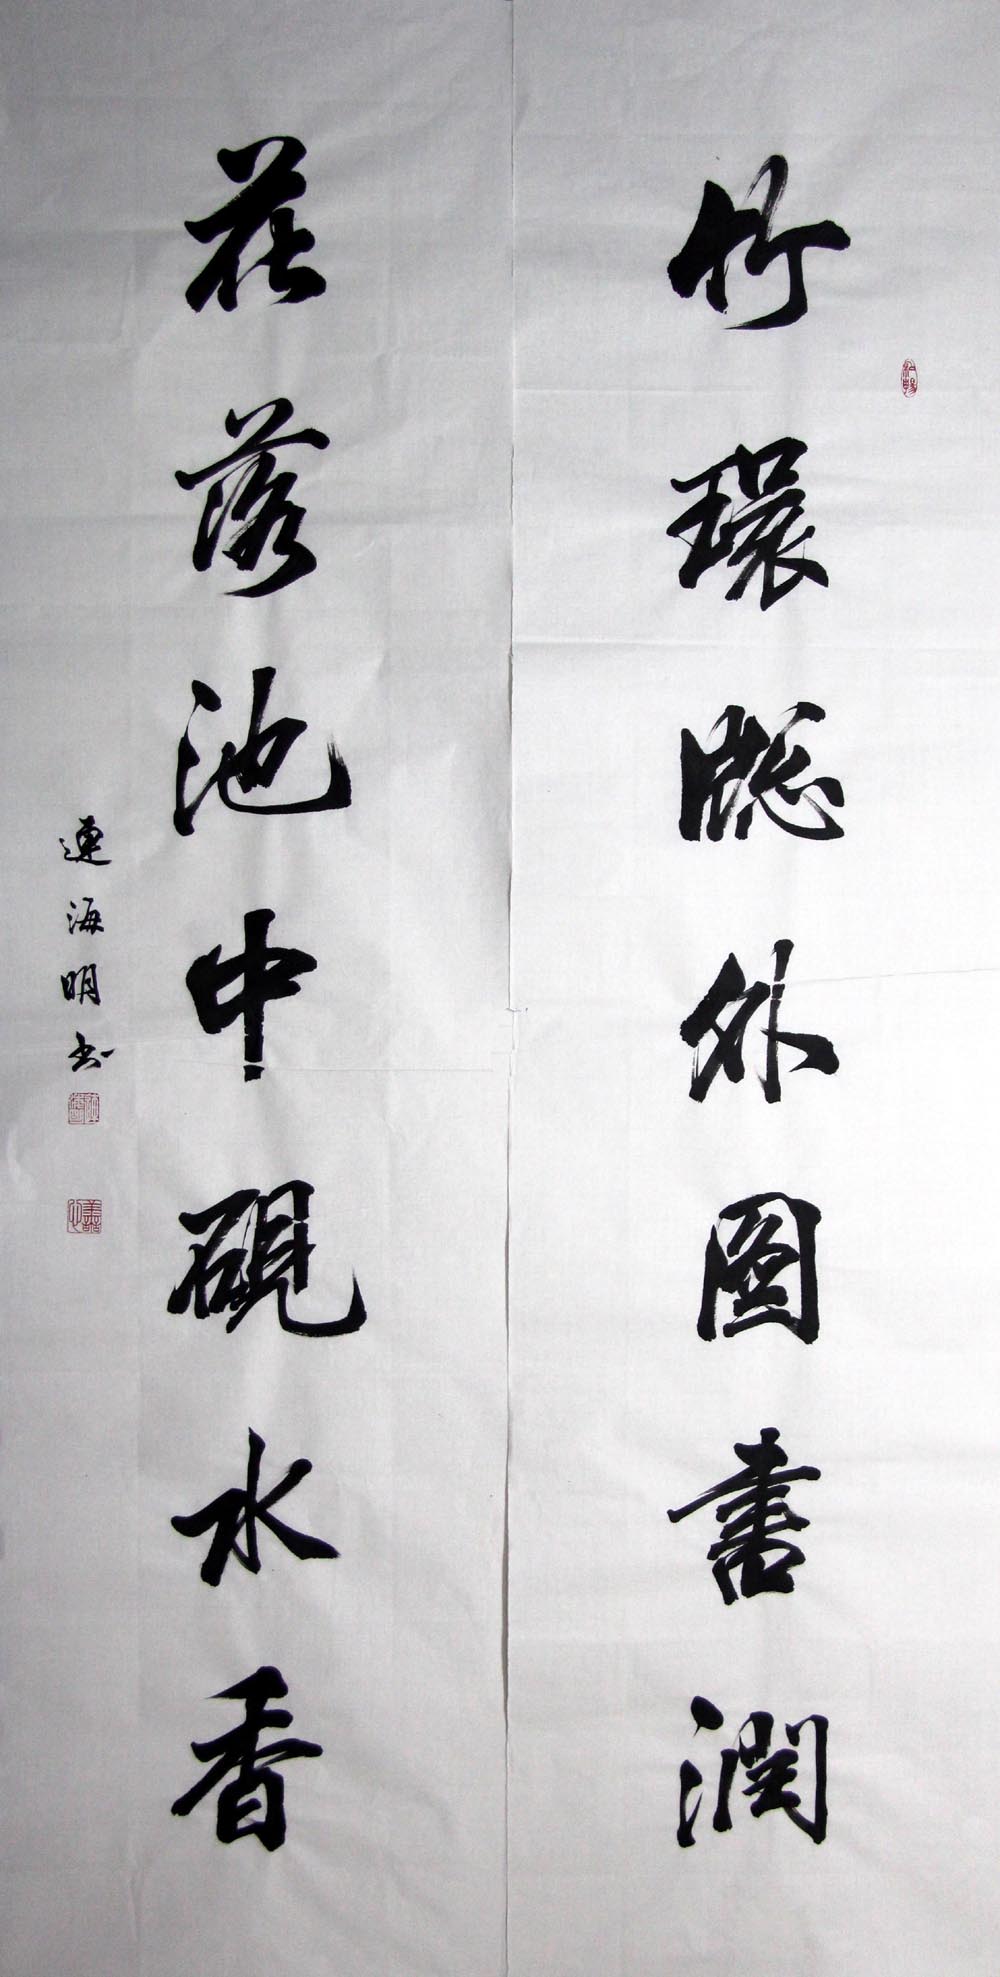 竹環牎外圖書潤
花落池中硯水香
連海明书